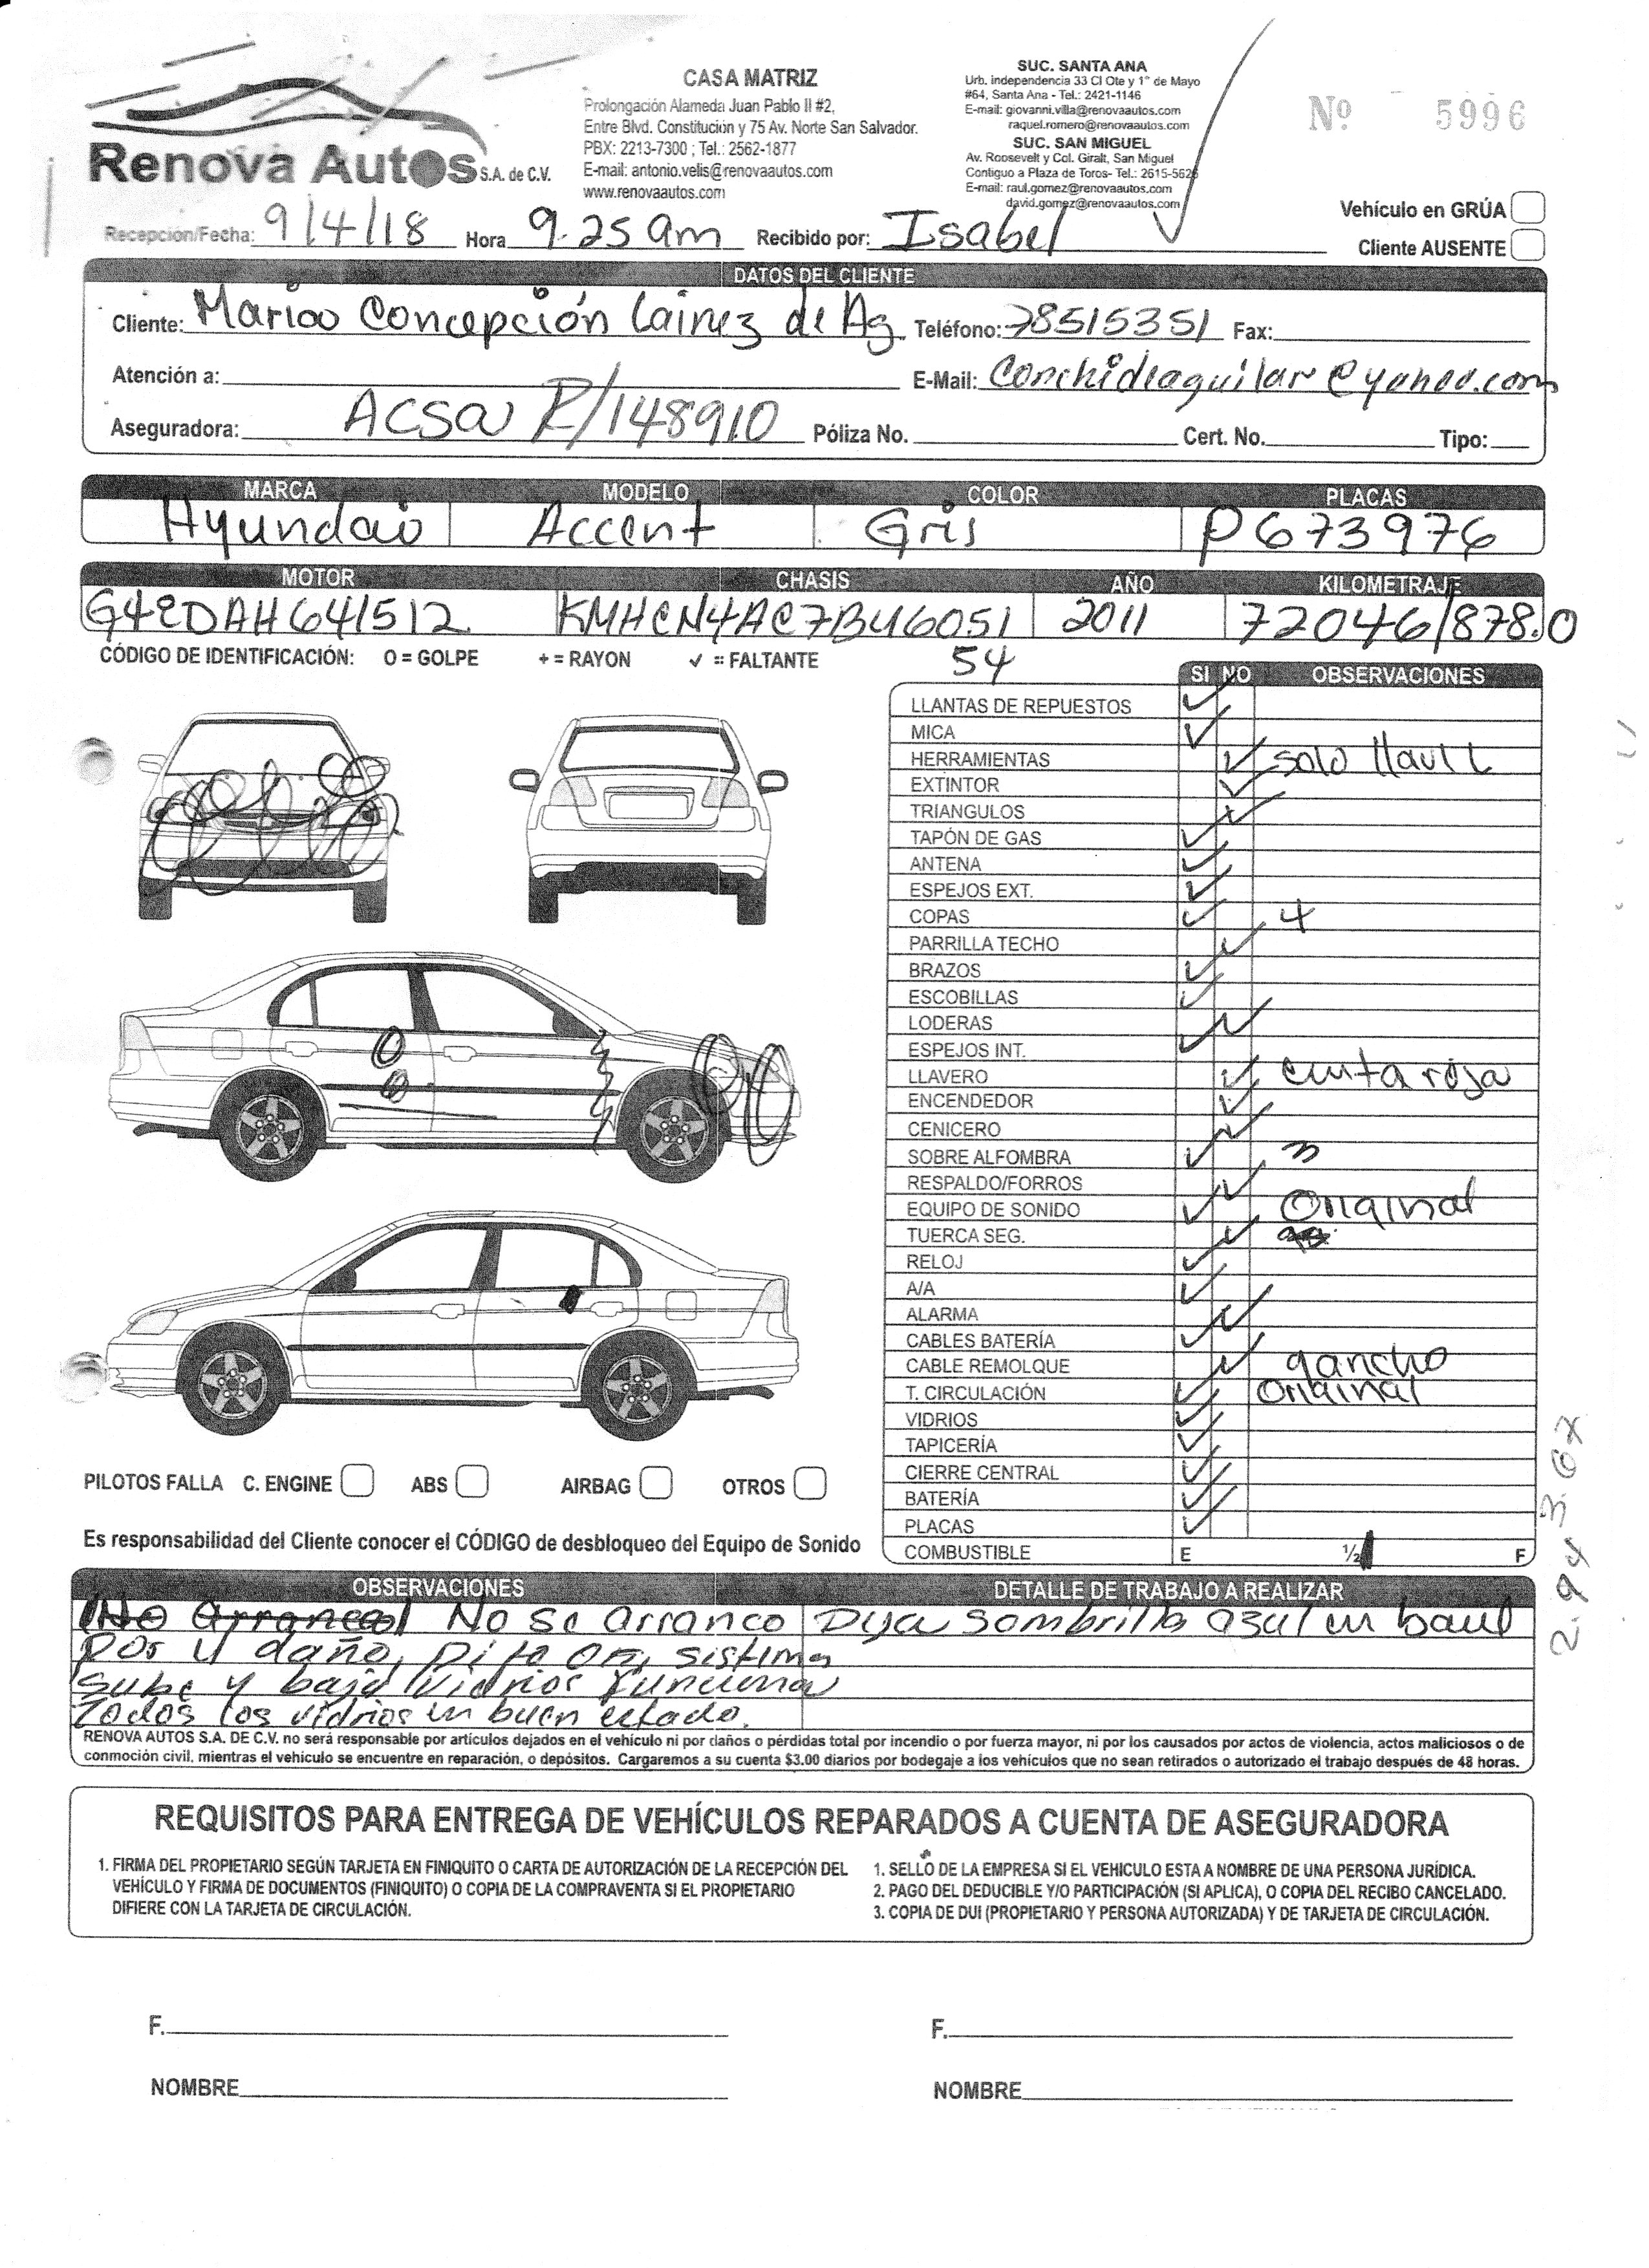 Renova Autos S.A. de C.V.
CASA MATRIZ
Prolongación Alameda Juan Pablo II #2,
Entre Blvd. Constitución y 75 Av. Norte San Salvador.
PBX: 2213-7300 ; Tel.: 2562-1877
E-mail: antonio.velis@renovaautos.com
www.renovaautos.com
SUC. SANTA ANA
Urb. independencia 33 Cl Ote y 1° de Mayo
#64, Santa Ana - Tel.: 2421-1146
E-mail: giovanni.villa@renovaautos.com
raquel.romero@renovaautos.com
SUC. SAN MIGUEL
Av. Roosevelt y Col. Giralt, San Miguel
Contiguo a Plaza de Toros- Tel.: 2615-562
E-mail: raul.gomez@renovaautos.com
david.gomez@renovaautos.com
Nº 5996
Vehículo en GRÚA
Cliente AUSENTE
Recepción/Fecha: 9/4/18 Hora 9.25 am Recibido por: Isabel
DATOS DEL CLIENTE
Cliente: Maria Concepción Lainez de Ag Teléfono: 78515351 Fax:
Atención a: E-Mail: Conchideaguilar@yahoo.com
Aseguradora: ACSA R/148910 Póliza No. Cert. No. Tipo:
MARCA MODELO COLOR PLACAS
Hyundai Accent Gris P673976
MOTOR CHASIS AÑO KILOMETRAJE
G4EDAH641512 KMHCN4AC7BU6051 2011 72046/878.0
54
CÓDIGO DE IDENTIFICACIÓN: O = GOLPE + = RAYON ✓ = FALTANTE
SI NO OBSERVACIONES
LLANTAS DE REPUESTOS ✓
MICA ✓
HERRAMIENTAS ✓ solo llave L
EXTINTOR ✓
TRIANGULOS ✓
TAPÓN DE GAS ✓
ANTENA ✓
ESPEJOS EXT. ✓
COPAS ✓ 4
PARRILLA TECHO ✓
BRAZOS ✓
ESCOBILLAS ✓
LODERAS ✓
ESPEJOS INT. ✓
LLAVERO ✓ cinta roja
ENCENDEDOR ✓
CENICERO ✓
SOBRE ALFOMBRA ✓ 3
RESPALDO/FORROS ✓
EQUIPO DE SONIDO ✓ Original
TUERCA SEG. ✓
RELOJ ✓
A/A ✓
ALARMA ✓
CABLES BATERÍA ✓
CABLE REMOLQUE ✓ gancho
T. CIRCULACIÓN ✓ Original
VIDRIOS ✓
TAPICERÍA ✓
CIERRE CENTRAL ✓
BATERÍA ✓
PLACAS ✓
COMBUSTIBLE E ½ F
PILOTOS FALLA C. ENGINE ABS AIRBAG OTROS
Es responsabilidad del Cliente conocer el CÓDIGO de desbloqueo del Equipo de Sonido
2.943.67
OBSERVACIONES DETALLE DE TRABAJO A REALIZAR
No arranco No se arranco Deja sombrilla azul en baul
por el daño, Pito OK, sistema
sube y baja vidrios funciona
Todos los vidrios en buen estado.
RENOVA AUTOS S.A. DE C.V. no será responsable por artículos dejados en el vehículo ni por daños o pérdidas total por incendio o por fuerza mayor, ni por los causados por actos de violencia, actos maliciosos o de
conmoción civil, mientras el vehículo se encuentre en reparación, o depósitos. Cargaremos a su cuenta $3.00 diarios por bodegaje a los vehículos que no sean retirados o autorizado el trabajo después de 48 horas.
REQUISITOS PARA ENTREGA DE VEHÍCULOS REPARADOS A CUENTA DE ASEGURADORA
1. FIRMA DEL PROPIETARIO SEGÚN TARJETA EN FINIQUITO O CARTA DE AUTORIZACIÓN DE LA RECEPCIÓN DEL
VEHÍCULO Y FIRMA DE DOCUMENTOS (FINIQUITO) O COPIA DE LA COMPRAVENTA SI EL PROPIETARIO
DIFIERE CON LA TARJETA DE CIRCULACIÓN.
1. SELLO DE LA EMPRESA SI EL VEHICULO ESTA A NOMBRE DE UNA PERSONA JURÍDICA.
2. PAGO DEL DEDUCIBLE Y/O PARTICIPACIÓN (SI APLICA), O COPIA DEL RECIBO CANCELADO.
3. COPIA DE DUI (PROPIETARIO Y PERSONA AUTORIZADA) Y DE TARJETA DE CIRCULACIÓN.
F. F.
NOMBRE NOMBRE